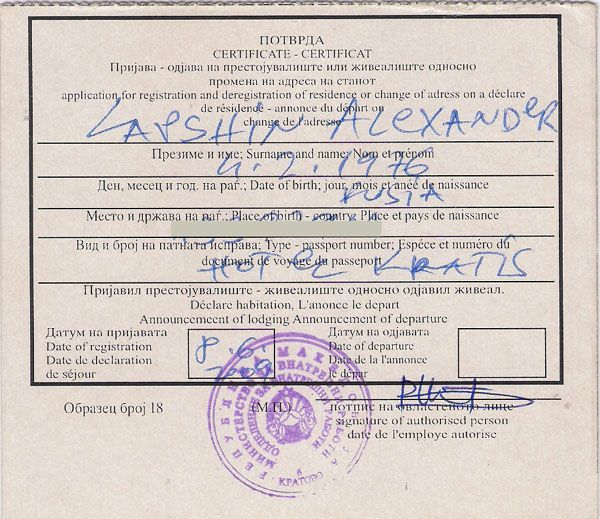 ПОТВРДА
CERTIFICATE - CERTIFICAT
Пријава - одјава на престојувалиште или живеалиште односно
промена на адреса на станот
application for registration and deregistration of residence or change of adress on a déclare
de résidence - annonce du départ on
change de l'adresse
LAPSHIN ALEXANDER
Презиме и име; Surname and name; Nom et prénom
4.2.1976
Ден, месец и год. на раѓ.; Date of birth; jour, mois et anée de naissance
RUSIA
Место и држава на раѓ.; Place of birth - country; Place et pays de naissance
Вид и број на патната исправа; Type - passport number; Espéce et numéro du
document de voyage du passeport
HOTEL KRATIS
Пријавил престојувалиште - живеалиште односно одјавил живеал.
Déclare habitation, L'anonce le depart
Announcemecnt of lodging Announcement of departure
Датум на пријавата
Date of registration
Date de declaration
de séjour
8.6.
2009
Датум на одјавата
Date of departure
Date de la l'annonce
le depar
Образец број 18
(М.П.)
потпис на овластеното лице
signature of authorised person
date de l'employe autorise
РЕПУБЛИКА МАКЕДОНИЈА
МИНИСТЕРСТВО ЗА ВНАТРЕШНИ РАБОТИ
ОДДЕЛЕНИЕ ЗА ВНАТРЕШНИ РАБОТИ
6
КРАТОВО